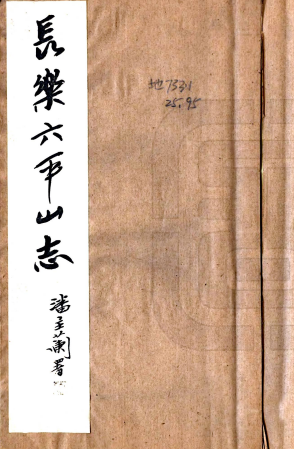 長樂六平山志
潘主蘭署
地7331
25.95